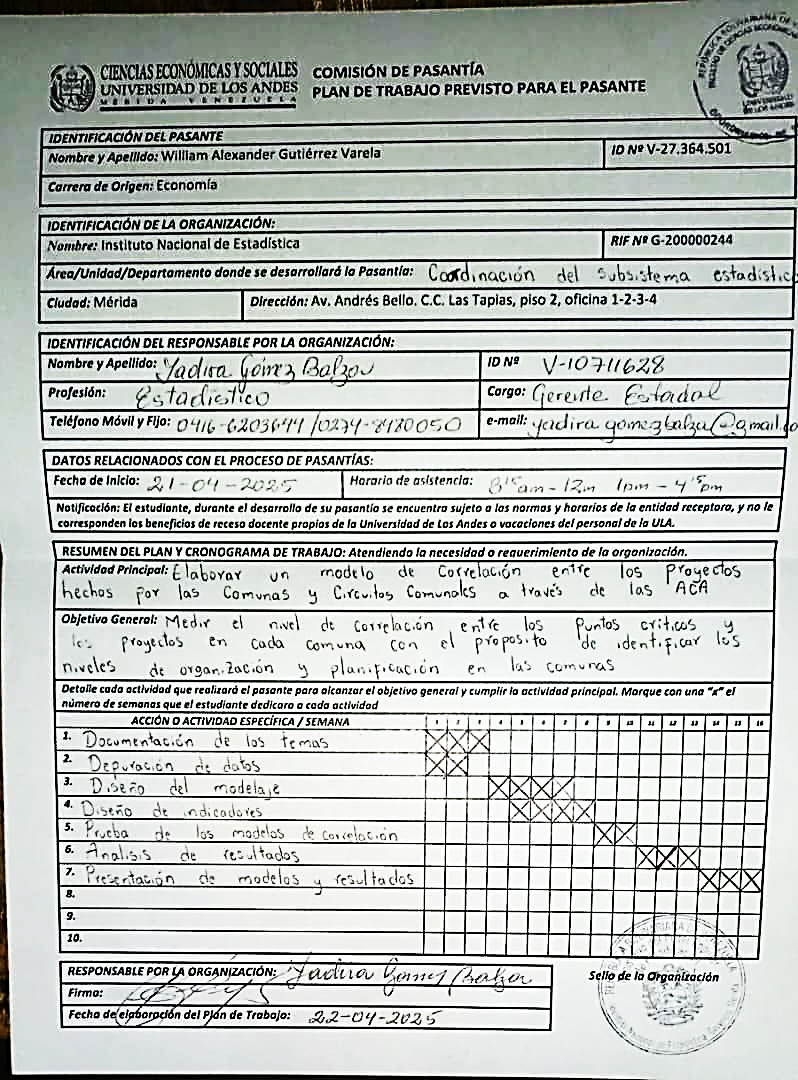 CIENCIAS ECONÓMICAS Y SOCIALES
UNIVERSIDAD DE LOS ANDES
MÉRIDA VENEZUELA
COMISIÓN DE PASANTÍA
PLAN DE TRABAJO PREVISTO PARA EL PASANTE
IDENTIFICACIÓN DEL PASANTE
Nombre y Apellido: William Alexander Gutiérrez Varela
ID Nº V-27.364.501
Carrera de Origen: Economía
IDENTIFICACIÓN DE LA ORGANIZACIÓN:
Nombre: Instituto Nacional de Estadística
RIF Nº G-200000244
Área/Unidad/Departamento donde se desarrollará la Pasantía: Coordinación del Subsistema estadístic
Ciudad: Mérida
Dirección: Av. Andrés Bello. C.C. Las Tapias, piso 2, oficina 1-2-3-4
IDENTIFICACIÓN DEL RESPONSABLE POR LA ORGANIZACIÓN:
Nombre y Apellido: Yadira Gómez Balza
ID Nº V-10711628
Profesión: Estadístico
Cargo: Gerente Estadal
Teléfono Móvil y Fijo: 0416-6203644 /0274-8480050
e-mail: yadira gomezbalza@gmail.co
DATOS RELACIONADOS CON EL PROCESO DE PASANTÍAS:
Fecha de Inicio: 21-04-2025
Horario de asistencia: 8:15am - 12m 1pm - 4:15pm
Notificación: El estudiante, durante el desarrollo de su pasantía se encuentra sujeto a las normas y horarios de la entidad receptora, y no le
corresponden los beneficios de receso docente propios de la Universidad de Los Andes o vacaciones del personal de la ULA.
RESUMEN DEL PLAN Y CRONOGRAMA DE TRABAJO: Atendiendo la necesidad o requerimiento de la organización.
Actividad Principal: Elaborar un modelo de Correlación entre los Proyectos
hechos por las Comunas y Circuitos Comunales a través de las ACA
Objetivo General: Medir el nivel de correlación entre los Puntos criticos y
los proyectos en cada comuna con el proposito de identificar los
niveles de organización y planificación en las comunas
Detalle cada actividad que realizará el pasante para alcanzar el objetivo general y cumplir la actividad principal. Marque con una "x" el
número de semanas que el estudiante dedicara a cada actividad
ACCIÓN O ACTIVIDAD ESPECÍFICA / SEMANA 1 2 3 4 5 6 7 8 9 10 11 12 13 14 15 16
1. Documentación de los temas X X X
2. Depuración de datos X X
3. Diseño del modelaje X X X X
4. Diseño de indicadores X X X X
5. Prueba de los modelos de correlación X X
6. Analisis de resultados X X X
7. Presentación de modelos y resultados X X X
8.
9.
10.
RESPONSABLE POR LA ORGANIZACIÓN: Yadira Gomez Balza
Firma:
Fecha de elaboración del Plan de Trabajo: 22-04-2025
Sello de la Organización